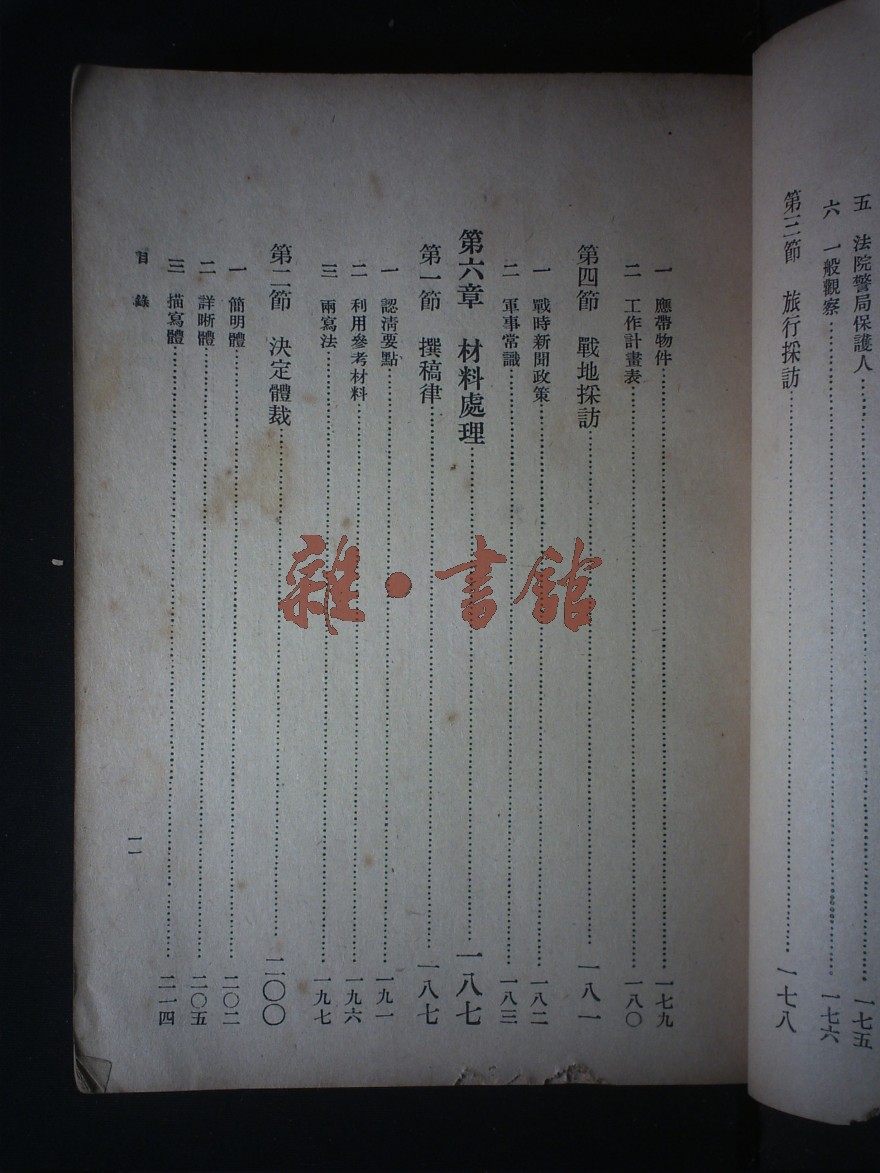 五 法院警局保護人 一七五
六 一般觀察 一七六
第三節 旅行採訪 一七八
一 應帶物件 一七九
二 工作計畫表 一八〇
第四節 戰地採訪 一八一
一 戰時新聞政策 一八二
二 軍事常識 一八三
第六章 材料處理 一八七
第一節 撰稿律 一八七
一 認清要點 一九一
二 利用參考材料 一九六
三 兩寫法 一九七
第二節 決定體裁 二〇〇
一 簡明體 二〇二
二 詳晰體 二〇五
三 描寫體 二一四
目錄 一一
雜·書館